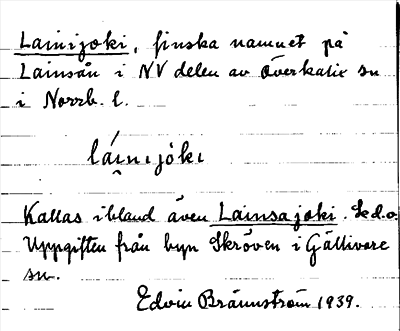 Lainijoki, finska namnet på
Lainsån i NV delen av Överkalix sn
i Norrb. l.
lái̯nıjókı
Kallas ibland även Lainsajoki. Se d.o.
Uppgiften från byn Skröven i Gällivare
sn.
Edvin Brännström 1939.